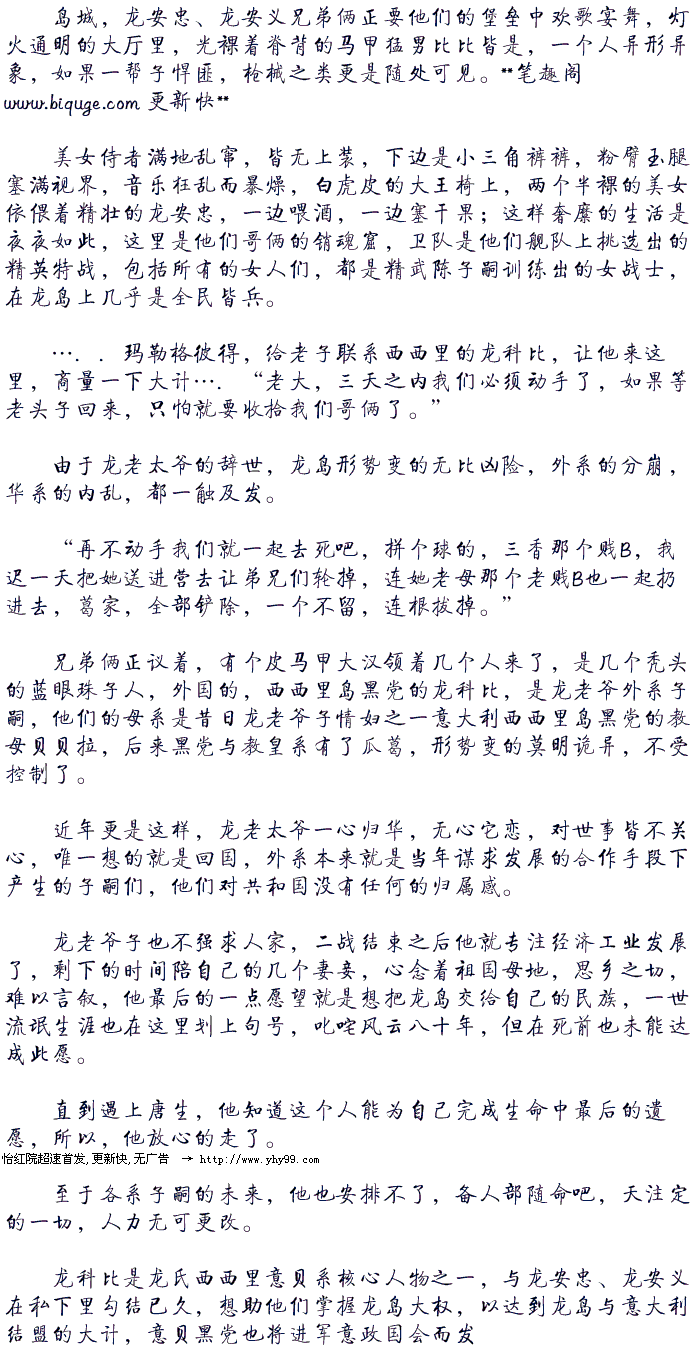 岛城，龙安忠、龙安义兄弟俩正要他们的堡垒中欢歌宴舞，灯
火通明的大厅里，光裸着脊背的马甲猛男比比皆是，一个人异形异
象，如果一帮子悍匪，枪械之类更是随处可见。**笔趣阁
www.biquge.com 更新快**
美女侍者满地乱窜，皆无上装，下边是小三角裤裤，粉臂玉腿
塞满视界，音乐狂乱而暴燥，白虎皮的大王椅上，两个半裸的美女
依偎着精壮的龙安忠，一边喂酒，一边塞干果；这样奢糜的生活是
夜夜如此，这里是他们哥俩的销魂窟，卫队是他们舰队上挑选出的
精英特战，包括所有的女人们，都是精武陈子嗣训练出的女战士，
在龙岛上几乎是全民皆兵。
…．．玛勒格彼得，给老子联系西西里的龙科比，让他来这
里，商量一下大计…．“老大，三天之内我们必须动手了，如果等
老头子回来，只怕就要收拾我们哥俩了。”
由于龙老太爷的辞世，龙岛形势变的无比凶险，外系的分崩，
华系的内乱，都一触及发。
“再不动手我们就一起去死吧，拼个球的，三香那个贱B，我
迟一天把她送进营去让弟兄们轮掉，连她老母那个老贱B也一起扔
进去，葛家，全部铲除，一个不留，连根拔掉。”
兄弟俩正议着，有个皮马甲大汉领着几个人来了，是几个秃头
的蓝眼珠子人，外国的，西西里岛黑党的龙科比，是龙老爷外系子
嗣，他们的母系是昔日龙老爷子情妇之一意大利西西里岛黑党的教
母贝贝拉，后来黑党与教皇系有了瓜葛，形势变的莫明诡异，不受
控制了。
近年更是这样，龙老太爷一心归华，无心它恋，对世事皆不关
心，唯一想的就是回国，外系本来就是当年谋求发展的合作手段下
产生的子嗣们，他们对共和国没有任何的归属感。
龙老爷子也不强求人家，二战结束之后他就专注经济工业发展
了，剩下的时间陪自己的几个妻妾，心念着祖国母地，思乡之切，
难以言叙，他最后的一点愿望就是想把龙岛交给自己的民族，一世
流氓生涯也在这里划上句号，叱咤风云八十年，但在死前也未能达
成此愿。
直到遇上唐生，他知道这个人能为自己完成生命中最后的遗
愿，所以，他放心的走了。
怡红院超速首发,更新快,无广告 → http://www.yhy99.com
至于各系子嗣的未来，他也安排不了，备人部随命吧，天注定
的一切，人力无可更改。
龙科比是龙氏西西里意贝系核心人物之一，与龙安忠、龙安义
在私下里勾结已久，想助他们掌握龙岛大权，以达到龙岛与意大利
结盟的大计，意贝黑党也将进军意政国会而发